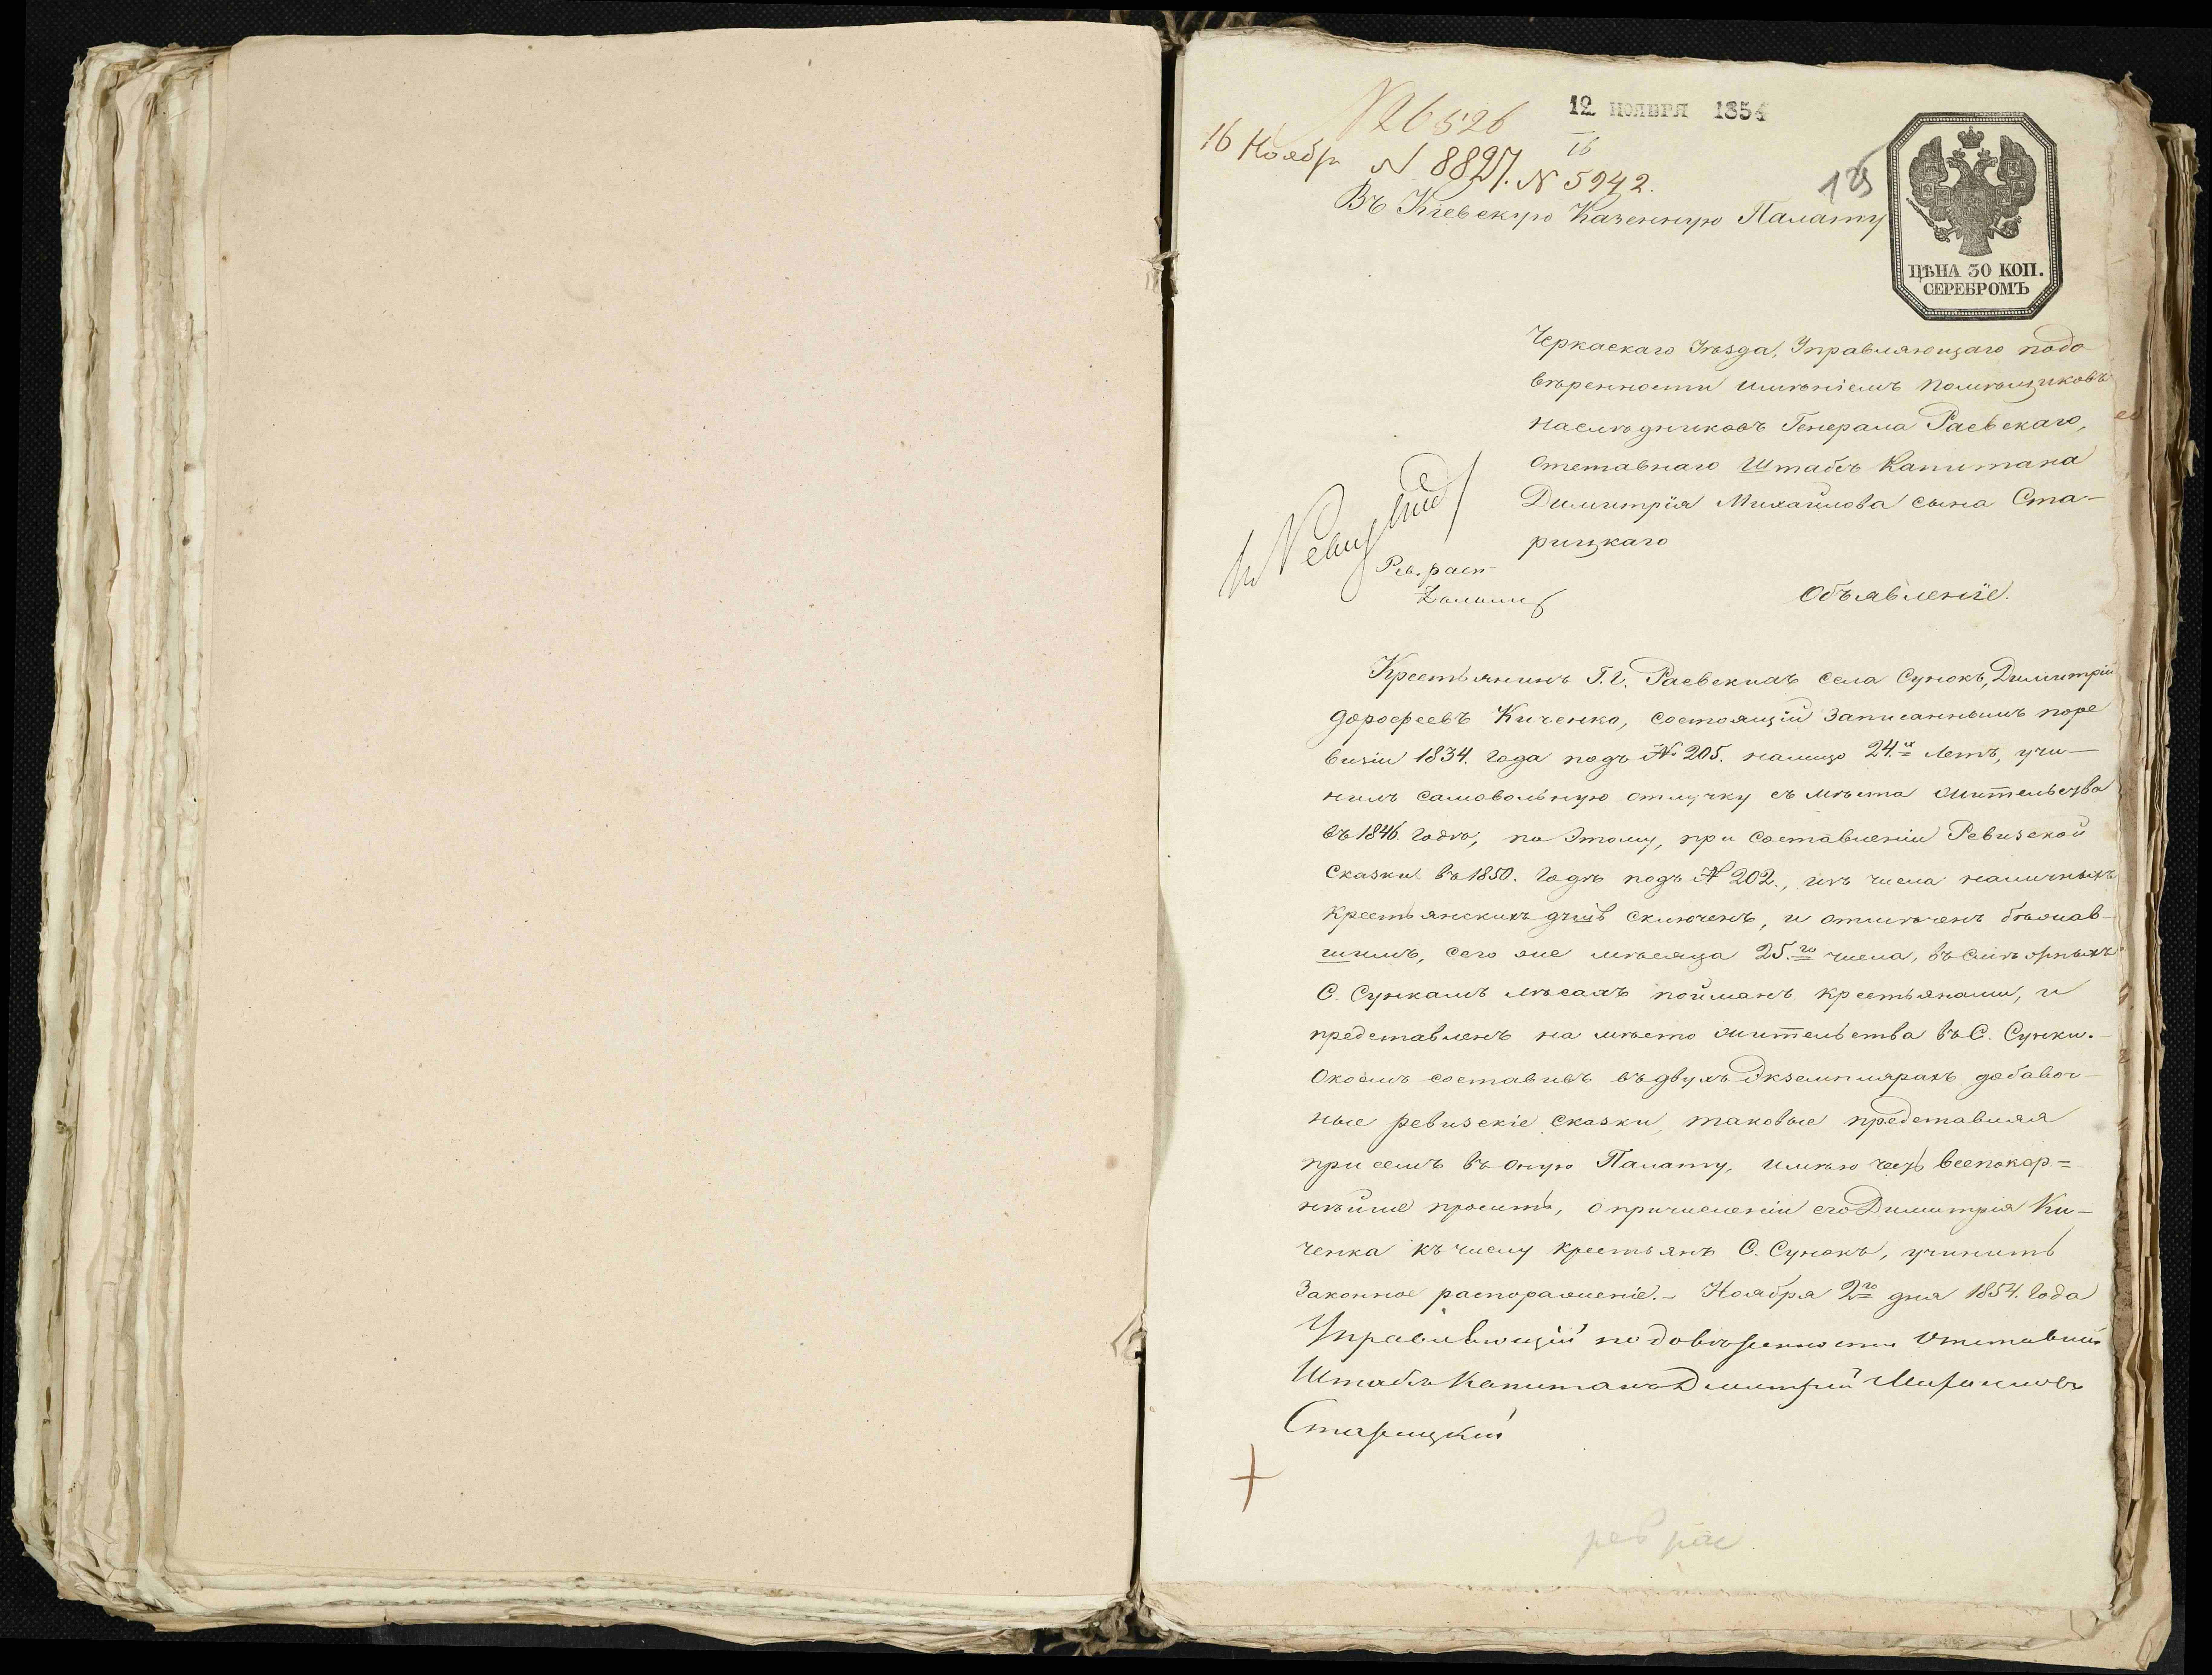 12 НОЯБРЯ 1854
№ 6526
16
16 Ноябр N 8827. N 5942.
125
Въ Кіевскую Казенную Палату
ЦѢНА 30 КОП.
СЕРЕБРОМЪ
Черкаскаго Уѣзда, Управляющаго подо
вѣренности имѣніемъ помѣщиковъ
наслѣдниковъ Генерала Раевскаго,
Отставнаго Штабсъ Капитана
Димитрія Михайлова сына Ста-
рицкаго
Объявленіе.
Крестьянинъ Г.г. Раевскихъ села Сунокъ, Димитрій
дорофеевъ Киченко, состоящій записаннымъ поре
визіи 1834. года подъ № 205. налицо 24.х летъ, учи-
нилъ самовольную отлучку съ мѣста жительства
въ 1846 годѣ, по Этому, при Составленіи Ревизской
Сказки въ 1850. Годѣ подъ № 202., изъ числа наличныхъ
крестьянскихъ душъ сключенъ, и отмѣченъ бѣжав-
шимъ, сего же мѣсяца 25.го числа, въ Смѣжныхъ
С. Сункамъ лѣсахъ пойманъ крестьянами, и
представленъ на мѣсто жительства въ С. Сунки.
Окоемъ составивъ въ двухъ Экземплярахъ добавоч-
ные ревизскіе сказки, таковые представляя
при семъ въ оную Палату, имѣю честь всепокор=
нѣйше просить, о причисленіи его Димитрія Ки-
ченка къ числу крестьянъ С. Сунокъ, учинить
Законное распоряженіе. - Ноября 2го дня 1854. Года
Управляющій по довѣренности Отставной
Штабсъ Капитанъ Дмитрій Михайловъ
Старицкій
рев рас